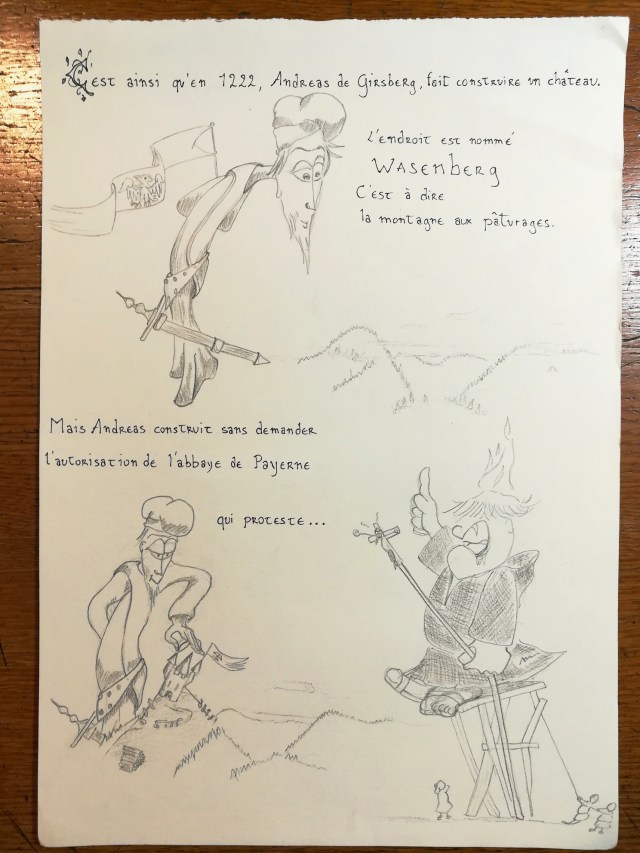 C'est ainsi qu'en 1222, Andreas de Girsberg, fait construire un château.
L'endroit est nommé
WASENBERG
C'est à dire
la montagne aux pâturages.
Mais Andreas construit sans demander
l'autorisation de l'abbaye de Payerne
qui proteste...